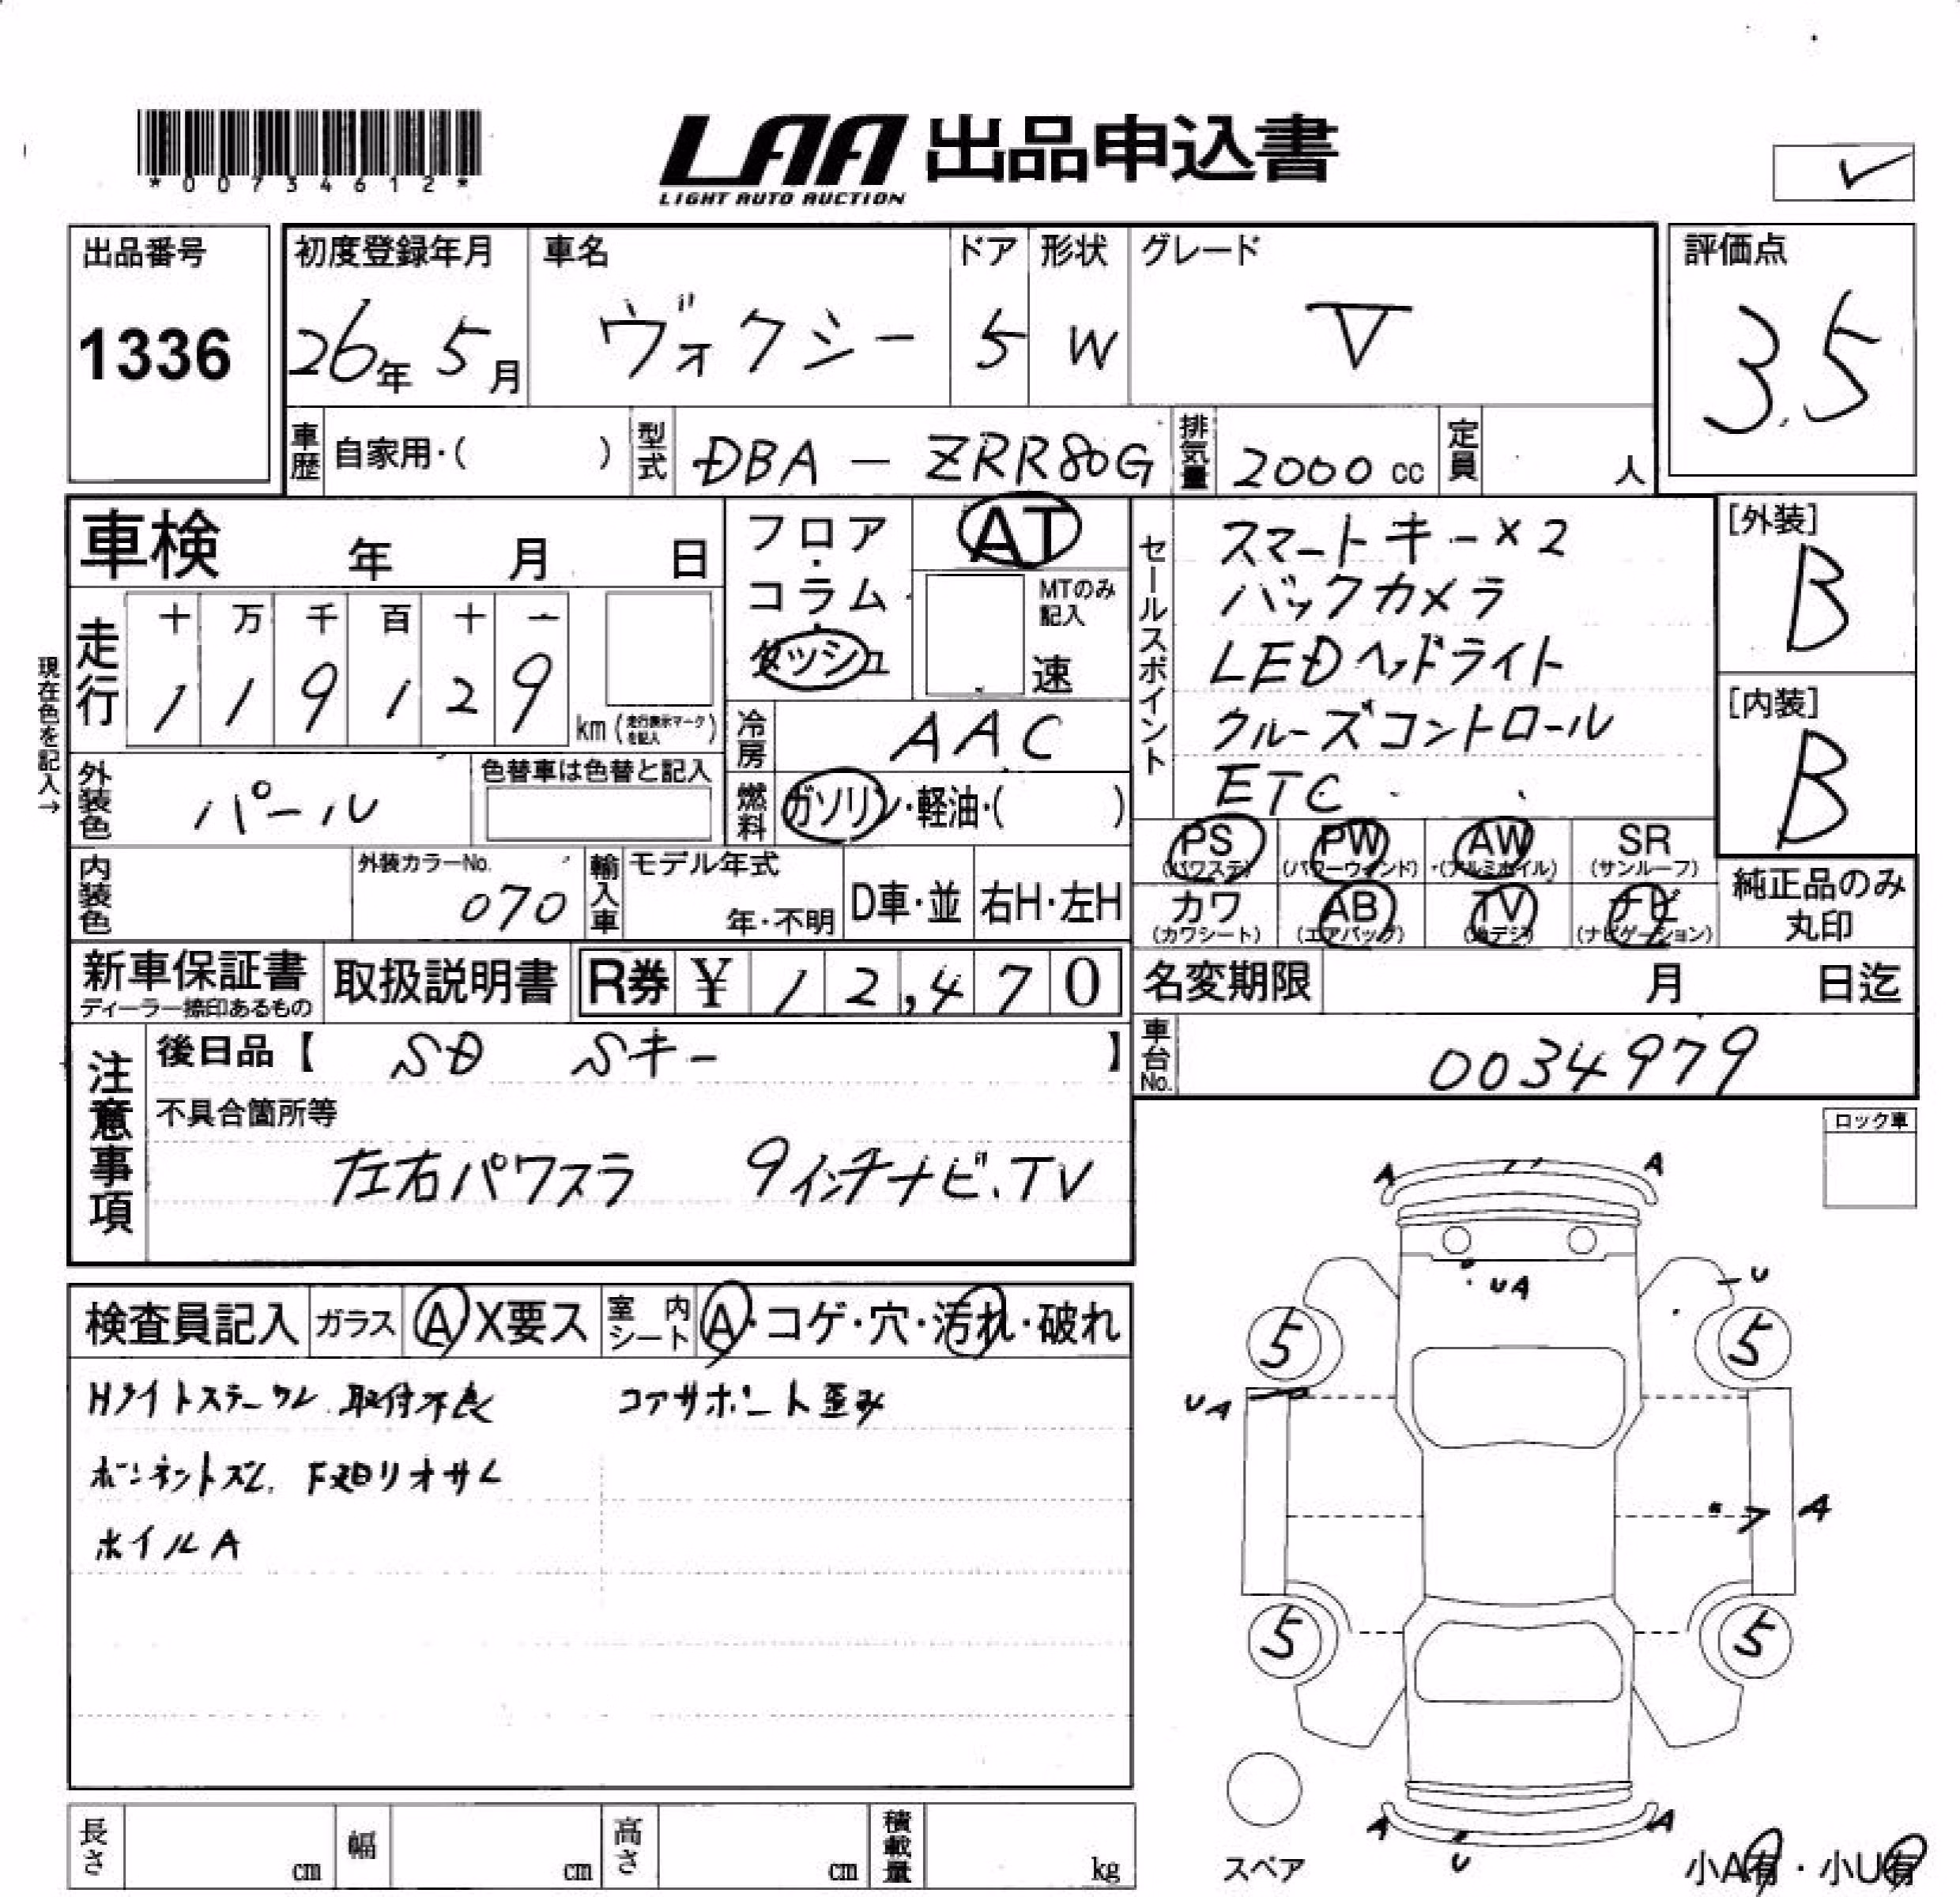 *00734612*
LAA 出品申込書
LIGHT AUTO AUCTION
出品番号
1336
初度登録年月
26年 5月
車名
ヴォクシー
ドア
5
形状
W
グレード
V
評価点
3.5
車歴 自家用・( )
型式 DBA - ZRR80G
排気量 2000 cc
定員 人
車検 年 月 日
フロア・コラム・ダッシュ
AT
MTのみ記入
速
現在色を記入→
走行
十 万 千 百 十 一
1 1 9 1 2 9
km (走行表示マークを記入)
冷房 AAC
燃料 ガソリン・軽油・( )
外装色 パール
色替車は色替と記入
内装色
外装カラーNo. 070
輸入車 モデル年式
年・不明
D車・並
右H・左H
セールスポイント
スマートキー×2
バックカメラ
LEDヘッドライト
クルーズコントロール
ETC
[外装]
B
[内装]
B
PS (パワステ)
PW (パワーウィンド)
AW (アルミホイル)
SR (サンルーフ)
カワ (カワシート)
AB (エアバッグ)
TV (地デジ)
ナビ (ナビゲーション)
純正品のみ丸印
新車保証書
ディーラー捺印あるもの
取扱説明書
R券 ¥ 12,470
名変期限 月 日迄
車台No. 0034979
注意事項
後日品【 SD Sキー 】
不具合箇所等
左右パワスラ 9インチナビ.TV
ロック車
検査員記入
ガラス A X要ス
室内シート A・コゲ・穴・汚れ・破れ
Hライトステークル 取付不良 コアサポート歪み
ボンネットズレ.
ホイルA
A A
UA
U
5 5
UA
A
5 5
A A
U
スペア
小A有・小U有
長さ cm
幅 cm
高さ cm
積載量 kg